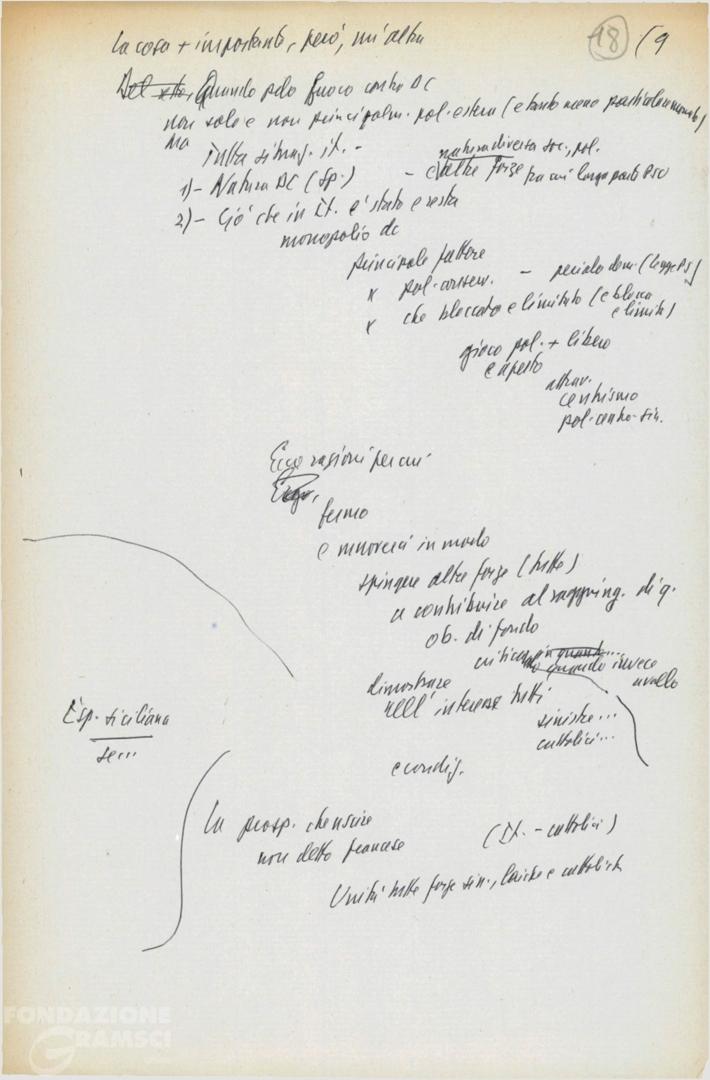 La cosa + importante, però, un'altra
18 (9
Del resto, Quando solo fuoco contro DC
non solo e non principalm. pol. estera (e tanto meno
Ma
Tutta situaz. it. -
natura diversa soc., pol.
1) - Natura DC (sp.) - e altre forze tra cui larga parte PSU
2) - Ciò che in It. è stato e resta
monopolio dc
principale fattore
x pol. conserv. - pericolo dem. (legge PS)
x che bloccato e limitato (e blocca
e limita)
gioco pol. + libero
e aperto
attrav.
centrismo
pol. centro-sin.
Ecco ragioni per cui
fermo
e muoversi in modo
spingere altre forze (tutte)
a contribuire al raggiung. di q.
ob. di fondo
in quanto...
quando invece
avallo
dimostrare
nell'interesse tutti
sinistre...
cattolici...
Esp. siciliana
se...
e condiz.
La prosp. che uscire
non detto francese
(It. - cattolici)
Unità tutte forze sin., laiche e cattoliche
FONDAZIONE
GRAMSCI